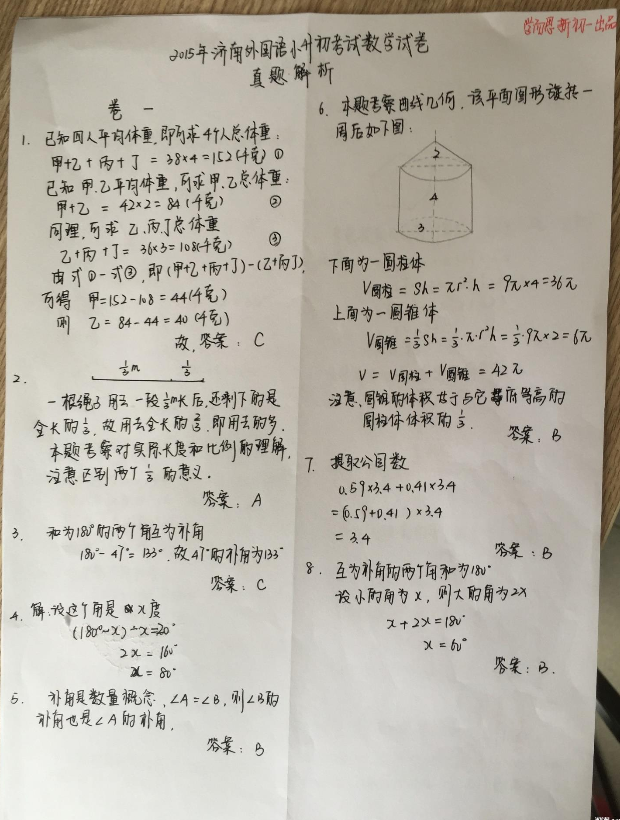 学而思新初一出品
2015年济南外国语小升初考试数学试卷
真题解析
卷一
1. 已知四人平均体重,即可求4个人总体重:
甲+乙+丙+丁=38×4=152(千克) ①
已知甲、乙平均体重,可求甲、乙总体重:
甲+乙 = 42×2=84(千克) ②
同理,可求乙、丙、丁总体重
乙+丙+丁=36×3=108(千克) ③
由式①-式③,即(甲+乙+丙+丁)-(乙+丙+丁),
可得 甲=152-108=44(千克)
则 乙=84-44=40(千克)
故,答案: C
2. 1/3m 1/3
一根绳子用去一段1/3m长后,还剩下的是
全长的1/3,故用去全长的2/3,即用去的多.
本题考察对实际长度和比例的理解,
注意区别两个1/3的意义.
答案: A
3. 和为180°的两个角互为补角
180°-47°=133°.故47°的补角为133°
答案: C
4. 解:设这个角是x度
(180°-x)-x=20°
2x=160°
x=80°
5. 补角是数量概念,∠A=∠B,则∠B的
补角也是∠A的补角.
答案: B
6. 本题考察曲线几何,该平面图形旋转一
周后如下图:
2
4
3
下面为一圆柱体
V圆柱=Sh=πr²·h=9π×4=36π
上面为一圆锥体
V圆锥=1/3Sh=1/3·π·r²h=1/3·9π×2=6π
V=V圆柱+V圆锥=42π
注意,圆锥的体积等于与它等底等高的
圆柱体体积的1/3.
答案: B
7. 提取公因数
0.59×3.4+0.41×3.4
=(0.59+0.41)×3.4
=3.4
答案: B
8. 互为补角的两个角和为180°
设小的角为x,则大的角为2x
x+2x=180°
x=60°
答案: B.